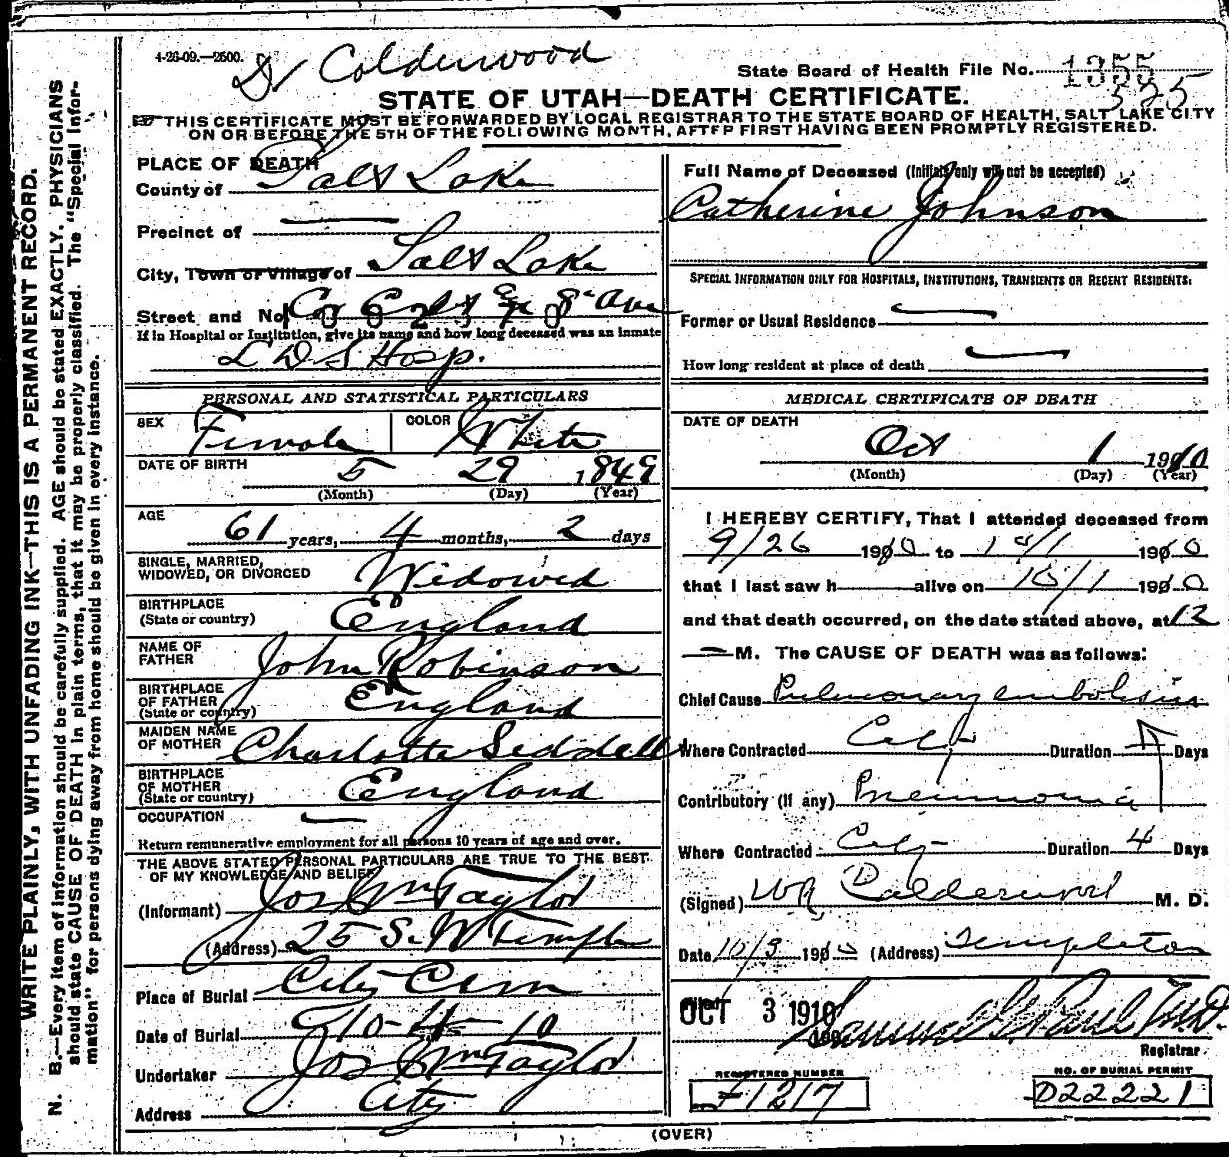 4-26-09.—2500.
Dr Calderwood
State Board of Health File No. 1355
525
STATE OF UTAH—DEATH CERTIFICATE.
THIS CERTIFICATE MUST BE FORWARDED BY LOCAL REGISTRAR TO THE STATE BOARD OF HEALTH, SALT LAKE CITY
ON OR BEFORE THE 5TH OF THE FOLLOWING MONTH, AFTER FIRST HAVING BEEN PROMPTLY REGISTERED.
WRITE PLAINLY, WITH UNFADING INK—THIS IS A PERMANENT RECORD.
N. B.—Every item of information should be carefully supplied. AGE should be stated EXACTLY. PHYSICIANS
should state CAUSE OF DEATH in plain terms, that it may be properly classified. The "Special Infor-
mation" for persons dying away from home should be given in every instance.
PLACE OF DEATH
County of Salt Lake
Precinct of —
City, Town or Village of Salt Lake
Street and No. Cor C St & 8" Ave
If in Hospital or Institution, give its name and how long deceased was an inmate
L D S Hosp.
PERSONAL AND STATISTICAL PARTICULARS
SEX Female COLOR White
DATE OF BIRTH 5 29 1849
(Month) (Day) (Year)
AGE
61 years, 4 months, 2 days
SINGLE, MARRIED,
WIDOWED, OR DIVORCED Widowed
BIRTHPLACE
(State or country) England
NAME OF
FATHER John Robinson
BIRTHPLACE
OF FATHER
(State or country) England
MAIDEN NAME
OF MOTHER Charlotte Seddell
BIRTHPLACE
OF MOTHER
(State or country) England
OCCUPATION —
Return remunerative employment for all persons 10 years of age and over.
THE ABOVE STATED PERSONAL PARTICULARS ARE TRUE TO THE BEST
OF MY KNOWLEDGE AND BELIEF
(Informant) Jos Wm Taylor
(Address) 25 S. W Temple
Place of Burial City Cem
Date of Burial 10-4-10
Undertaker Jos Wm Taylor
Address City
Full Name of Deceased (Initials only will not be accepted)
Catherine Johnson
SPECIAL INFORMATION ONLY FOR HOSPITALS, INSTITUTIONS, TRANSIENTS OR RECENT RESIDENTS:
Former or Usual Residence —
How long resident at place of death —
MEDICAL CERTIFICATE OF DEATH
DATE OF DEATH
Oct 1 1910
(Month) (Day) (Year)
I HEREBY CERTIFY, That I attended deceased from
9/26 1910 to 10/1 1910
that I last saw h alive on 10/1 1910
and that death occurred, on the date stated above, at 12
— M. The CAUSE OF DEATH was as follows:
Chief Cause Pulmonary embolism
Where Contracted City Duration Days
Contributory (if any) Pneumonia
Where Contracted City Duration 4 Days
(Signed) WR Calderwood M. D.
Date 10/3 1910 (Address) Templeton
Filed OCT 3 1910 Samuel G. Paul M.D.
190
Registrar
REGISTERED NUMBER
F1217
NO. OF BURIAL PERMIT
D22221
(OVER)